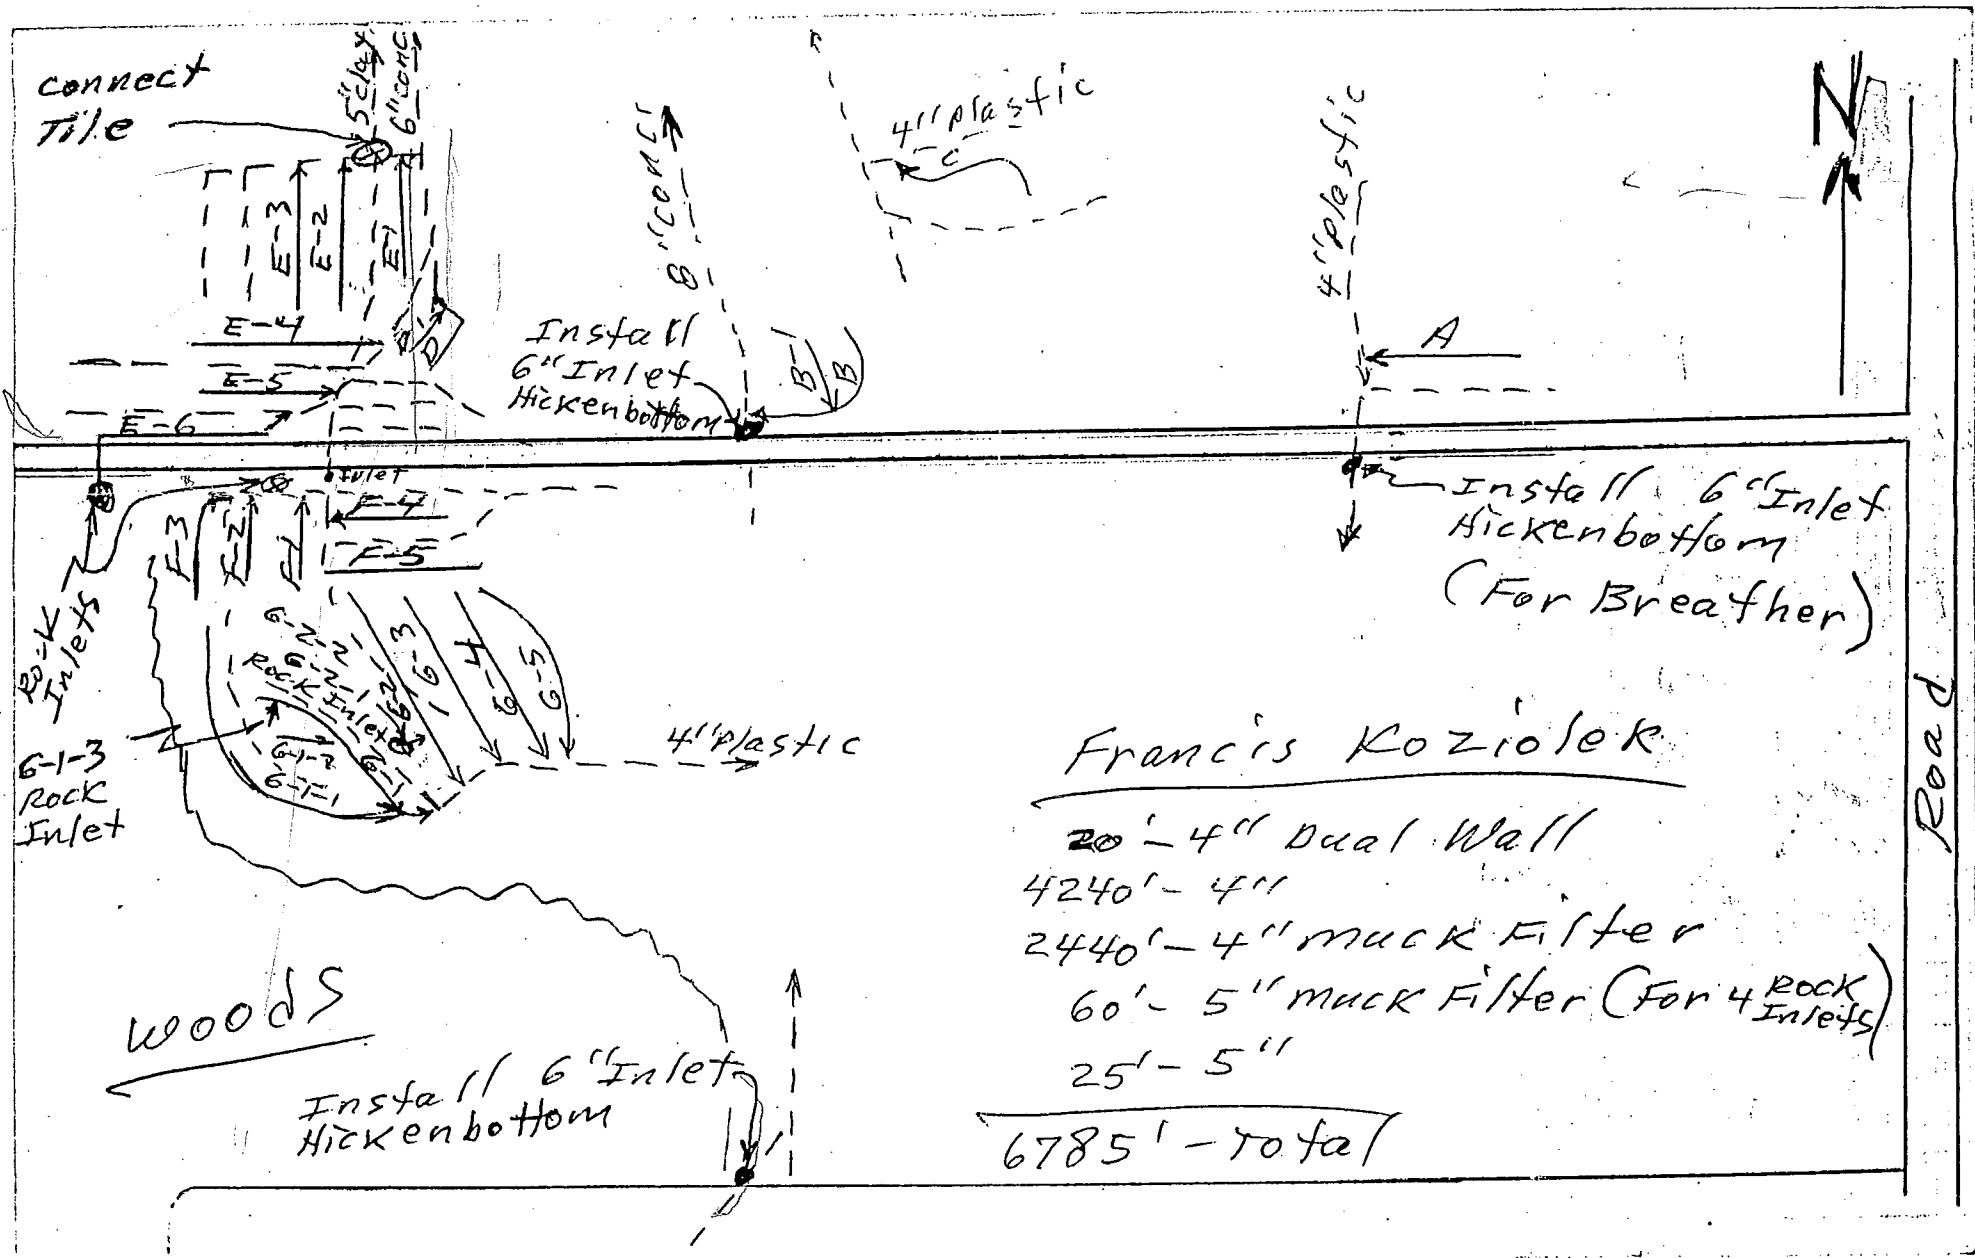 Connect
Tile
5" clay
6" conc
8" conc
4" plastic
C
4" plastic
N
E-3
E-2
E-1
E-4
D
E-5
E-6
Install
6" Inlet
Hickenbottom
B-1
B
A
Inlet
F-3
F-2
F-1
F-4
F-5
Install 6" Inlet
Hickenbottom
(For Breather)
Rock
Inlets
G-2-2
G-2-1
Rock Inlet
G-2
G-3
G-4
G-5
G-1-3
Rock
Inlet
G-1-2
G-1-1
G-1
4" Plastic
Road
Francis Koziolek
20' - 4" Dual Wall
4240' - 4"
2440' - 4" Muck Filter
60' - 5" Muck Filter (For 4 Rock Inlets)
25' - 5"
6785' - Total
Woods
Install 6" Inlet
Hickenbottom